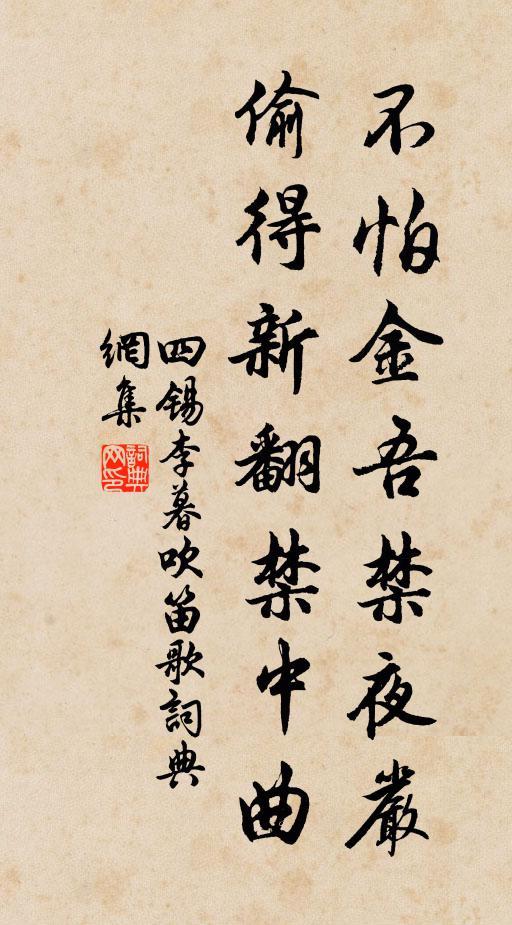 不怕金吾禁夜嚴
偷得新翻禁中曲
四錫李暮吹笛歌詞典
網集
詞典
网印